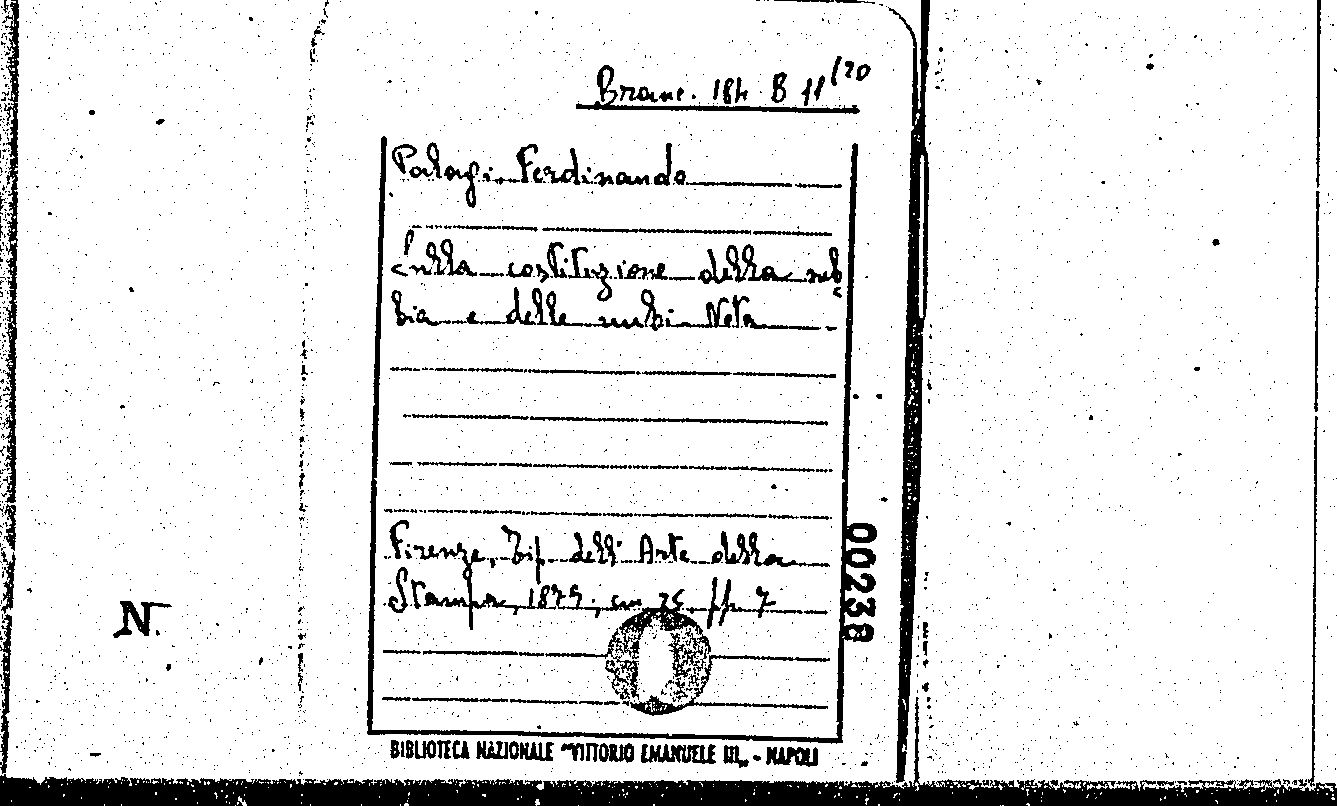 Branc. 184 B 11/20
Palagi Ferdinando
Sulla costituzione della neb
bia e delle nubi. Nota
Firenze, Tip. dell' Arte della
Stampa, 1879; cm 25. pp. 7
00238
N.
BIBLIOTECA NAZIONALE "VITTORIO EMANUELE III„ - NAPOLI